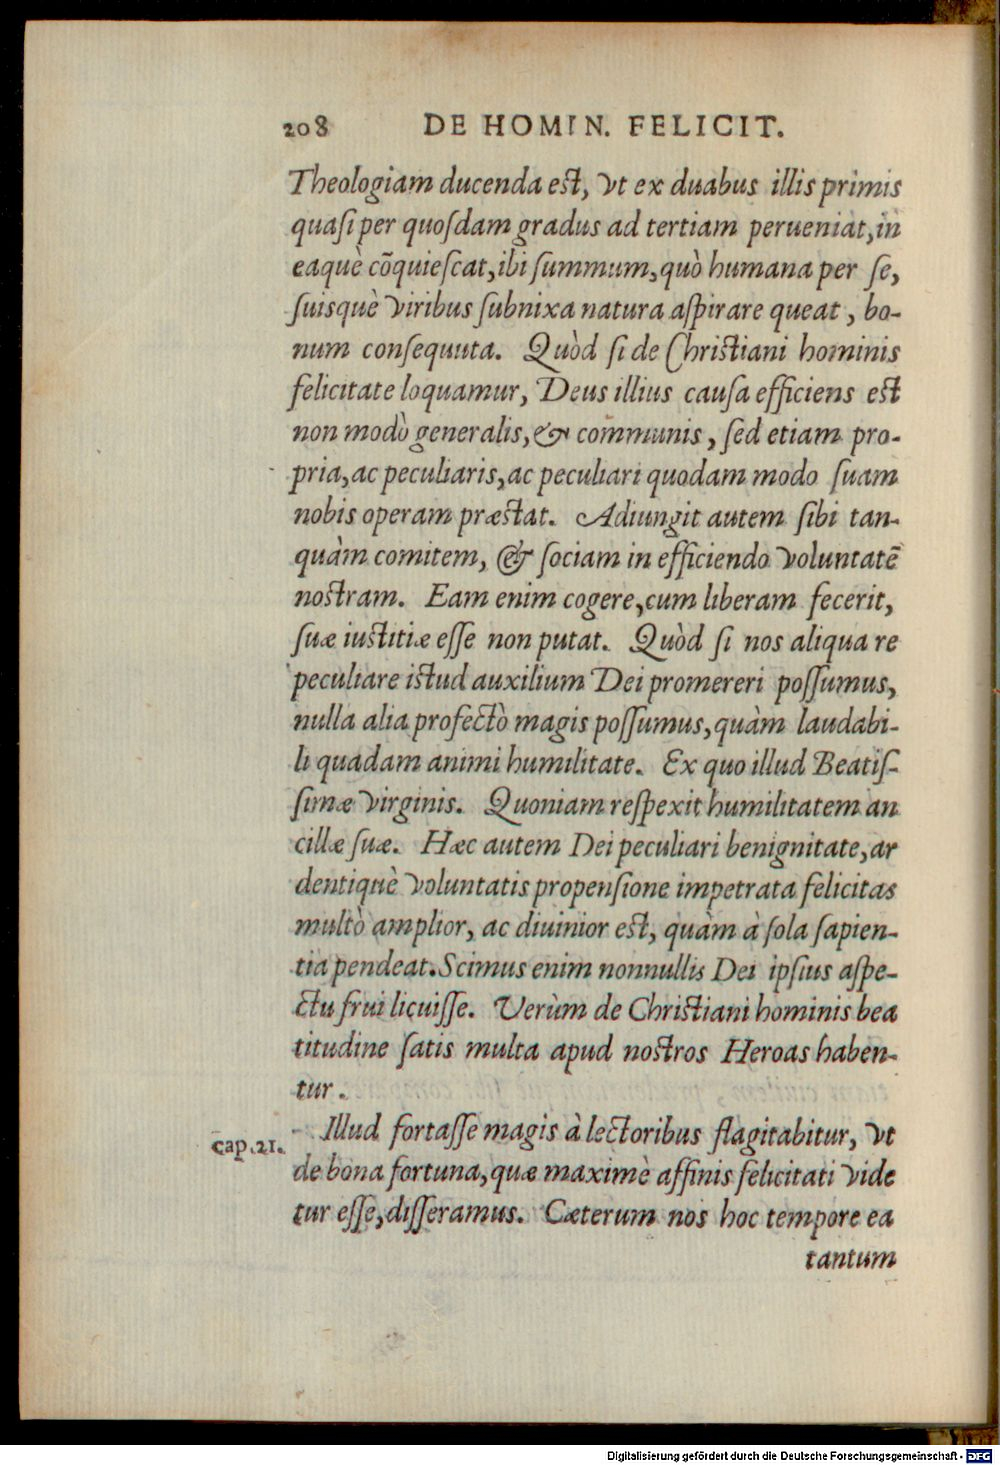 208 DE HOMIN. FELICIT.
Theologiam ducenda est, vt ex duabus illis primis
quasi per quosdam gradus ad tertiam perueniat, in
eaquè cõquiescat, ibi summum, quò humana per se,
suisquè viribus subnixa natura aspirare queat, bo-
num consequuta. Quòd si de Christiani hominis
felicitate loquamur, Deus illius causa efficiens est
non modò generalis, & communis, sed etiam pro-
pria, ac peculiaris, ac peculiari quodam modo suam
nobis operam præstat. Adiungit autem sibi tan-
quàm comitem, & sociam in efficiendo voluntatẽ
nostram. Eam enim cogere, cum liberam fecerit,
suæ iustitiæ esse non putat. Quòd si nos aliqua re
peculiare istud auxilium Dei promereri possumus,
nulla alia profectò magis possumus, quàm laudabi-
li quadam animi humilitate. Ex quo illud Beatis-
simæ virginis. Quoniam respexit humilitatem an
cillæ suæ. Hæc autem Dei peculiari benignitate, ar
dentiquè voluntatis propensione impetrata felicitas
multò amplior, ac diuinior est, quàm à sola sapien-
tia pendeat. Scimus enim nonnullis Dei ipsius aspe-
ctu frui licuisse. Verùm de Christiani hominis bea
titudine satis multa apud nostros Heroas haben-
tur.
cap. 21. Illud fortasse magis à lectoribus flagitabitur, vt
de bona fortuna, quæ maximè affinis felicitati vide
tur esse, disseramus. Cæterum nos hoc tempore ea
tantum
Digitalisierung gefördert durch die Deutsche Forschungsgemeinschaft - DFG